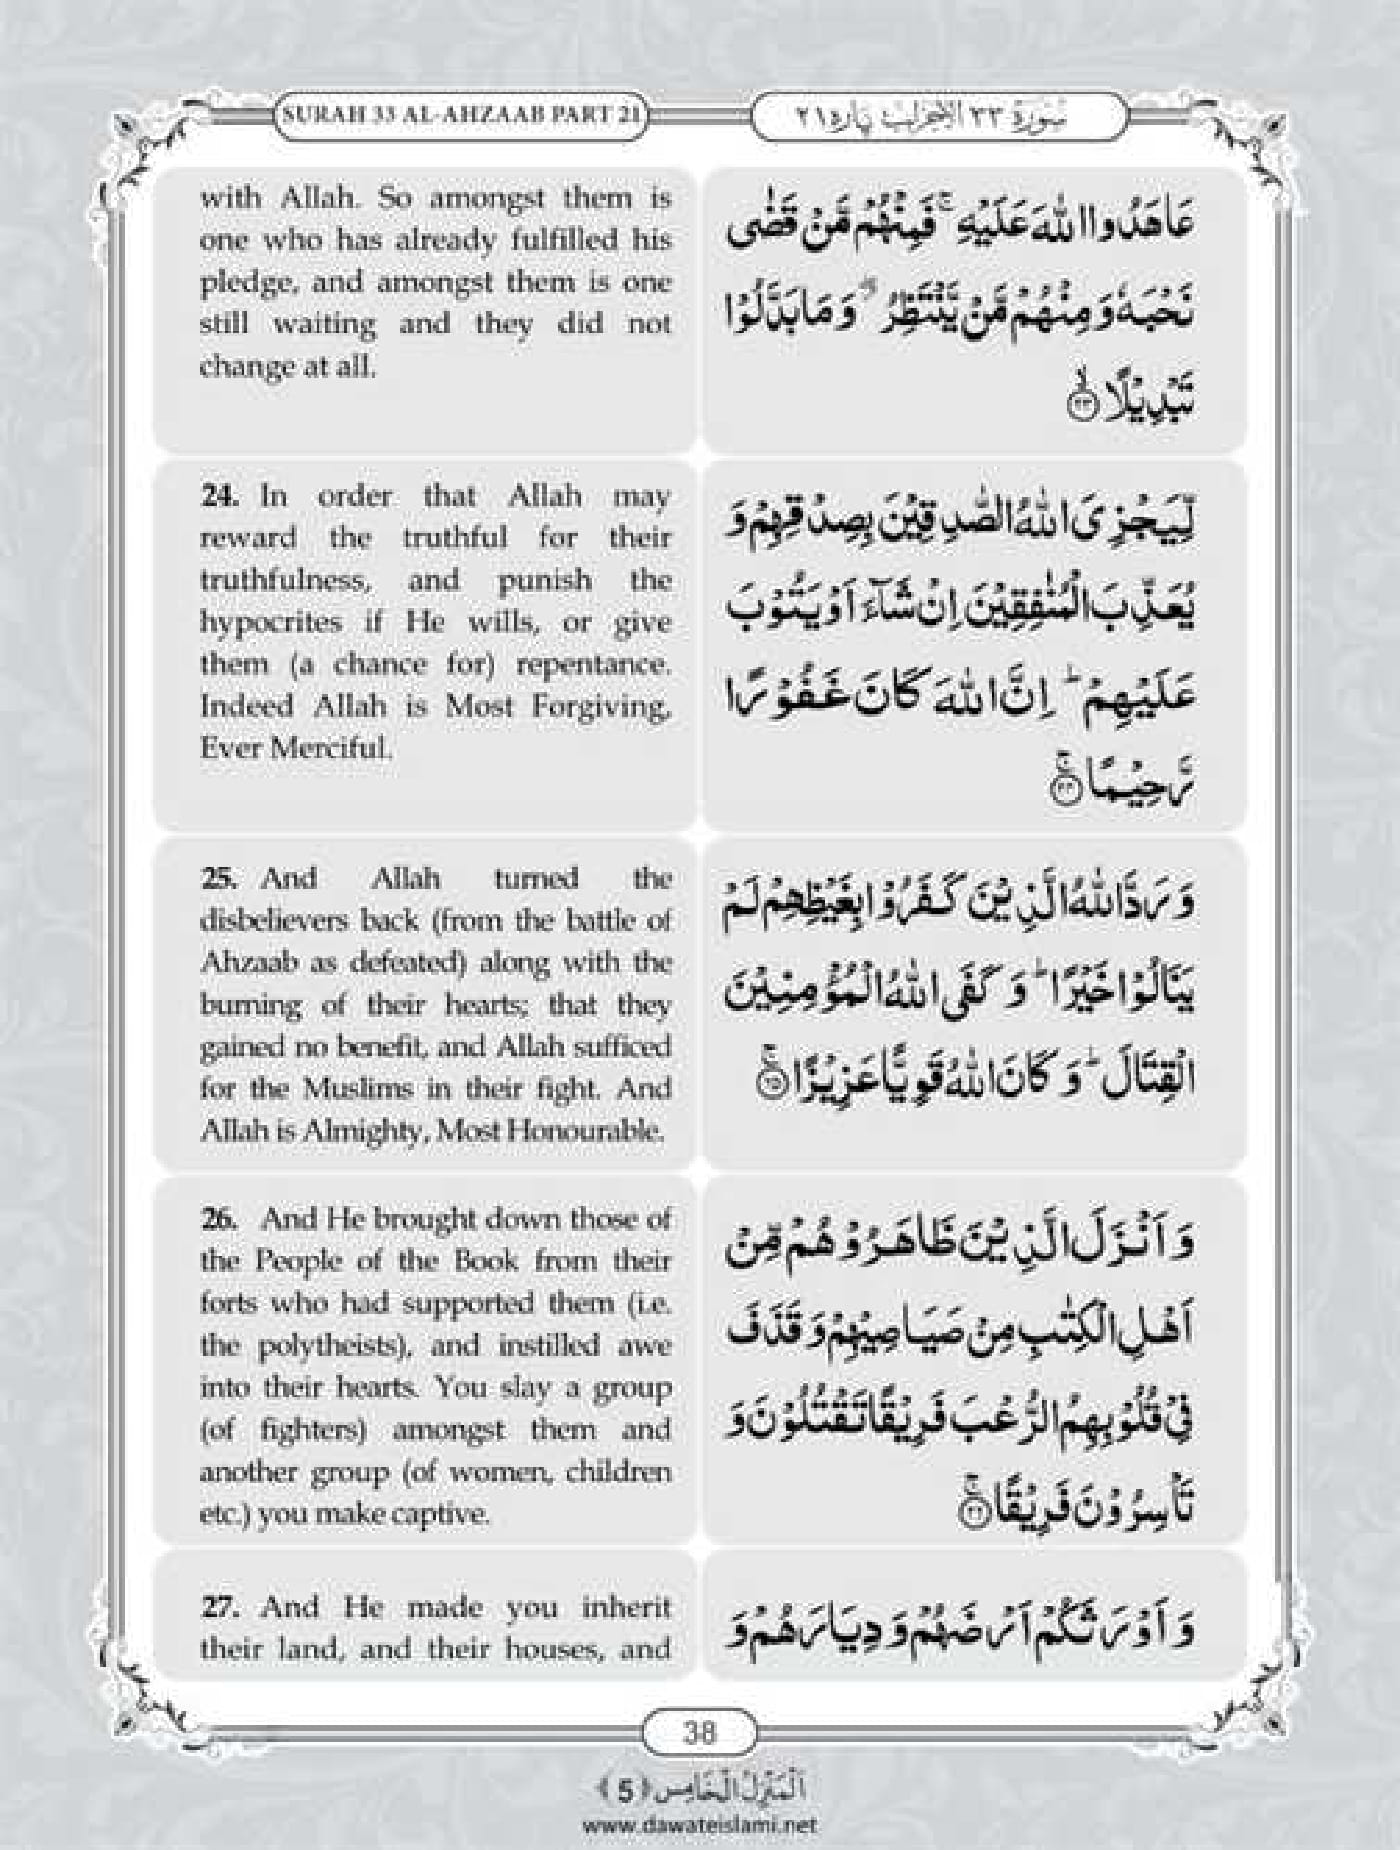 SURAH 33 AL-AHZAAB PART 21
سورة ٣٣ الاحزاب پاره ٢١
with Allah. So amongst them is
one who has already fulfilled his
pledge, and amongst them is one
still waiting and they did not
change at all.
عَاهَدُوا اللّٰهَ عَلَيْهِ ۚ فَمِنْهُمْ مَّنْ قَضٰى
نَحْبَهٗ وَ مِنْهُمْ مَّنْ يَّنْتَظِرُ ۖ وَ مَا بَدَّلُوْا
تَبْدِيْلًا ۙ﴿٢٣﴾
24. In order that Allah may
reward the truthful for their
truthfulness, and punish the
hypocrites if He wills, or give
them (a chance for) repentance.
Indeed Allah is Most Forgiving,
Ever Merciful.
لِّيَجْزِيَ اللّٰهُ الصّٰدِقِيْنَ بِصِدْقِهِمْ وَ
يُعَذِّبَ الْمُنٰفِقِيْنَ اِنْ شَآءَ اَوْ يَتُوْبَ
عَلَيْهِمْ ؕ اِنَّ اللّٰهَ كَانَ غَفُوْرًا
رَّحِيْمًا ۚ﴿٢٤﴾
25. And Allah turned the
disbelievers back (from the battle of
Ahzaab as defeated) along with the
burning of their hearts; that they
gained no benefit, and Allah sufficed
for the Muslims in their fight. And
Allah is Almighty, Most Honourable.
وَ رَدَّ اللّٰهُ الَّذِيْنَ كَفَرُوْا بِغَيْظِهِمْ لَمْ
يَنَالُوْا خَيْرًا ؕ وَ كَفَى اللّٰهُ الْمُؤْمِنِيْنَ
الْقِتَالَ ؕ وَ كَانَ اللّٰهُ قَوِيًّا عَزِيْزًا ۚ﴿٢٥﴾
26. And He brought down those of
the People of the Book from their
forts who had supported them (i.e.
the polytheists), and instilled awe
into their hearts. You slay a group
(of fighters) amongst them and
another group (of women, children
etc.) you make captive.
وَ اَنْزَلَ الَّذِيْنَ ظَاهَرُوْهُمْ مِّنْ
اَهْلِ الْكِتٰبِ مِنْ صَيَاصِيْهِمْ وَ قَذَفَ
فِيْ قُلُوْبِهِمُ الرُّعْبَ فَرِيْقًا تَقْتُلُوْنَ وَ
تَاْسِرُوْنَ فَرِيْقًا ۚ﴿٢٦﴾
27. And He made you inherit
their land, and their houses, and
وَ اَوْرَثَكُمْ اَرْضَهُمْ وَ دِيَارَهُمْ وَ
38
اَلْمَنْزِلُ الْخَامِس ﴿5﴾
www.dawateislami.net